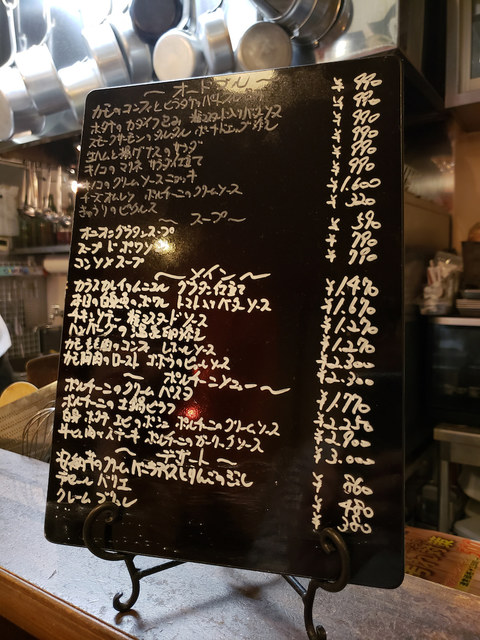 〜 オードブル 〜
¥990
¥990
ホタテのカダイフ包み 粒マスタード入りバターソース ¥990
スモークサーモンのタルタル ポーチドエッグ添え ¥990
生ハムと揚げナスのサラダ ¥990
キノコのマリネ サラダ仕立て ¥990
キノコのクリームソースニョッキ ¥1.600
チーズオムレツ ポルチーニのクリームソース
きゅうりのピクルス ¥320
〜 スープ 〜
オニオングラタンスープ ¥590
スープ ド ポワソン ¥790
コンソメスープ ¥790
〜 メイン 〜
カラスカレイのムニエル グラタン仕立て ¥1490
本日の白身魚のポワレ トマト入りバターソース ¥1.690
チキンソテー 粒マスタードソース ¥1.290
ハンバーグの温玉卵添え ¥1.290
かも もも肉のコンフィ ソース ¥2.300
かも胸肉のロースト ゴボウのピューレソース ¥2.300
〜 ポルチーニメニュー 〜
ポルチーニのクリームパスタ ¥1.790
ポルチーニの土鍋ピラフ ¥2.250
白身 ホタテ エビのポシェ ポルチーニのクリームソース ¥2.900
牛ヒレ肉のステーキ ポルチーニのガーリックソース ¥3.000
〜 デザート 〜
安納芋のクリーム バニラアイスとりんご添え ¥860
テリーヌ ¥480
クレーム ブリュレ ¥380